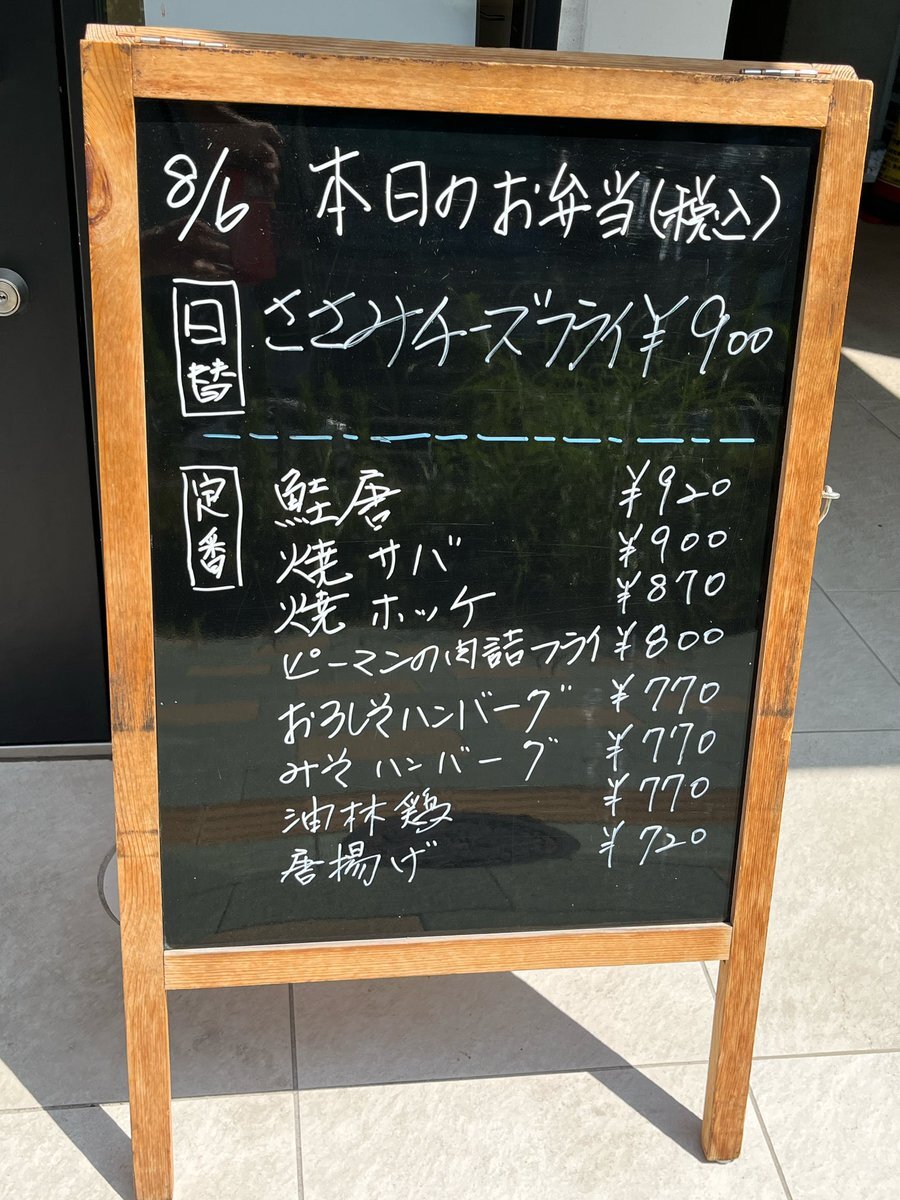 8/6 本日のお弁当(税込)
日替 ささみチーズフライ ¥900
定番 鮭唐 ¥920
焼サバ ¥900
焼ホッケ ¥870
ピーマンの肉詰フライ ¥800
おろしそハンバーグ ¥770
みそハンバーグ ¥770
油林鶏 ¥770
唐揚げ ¥720